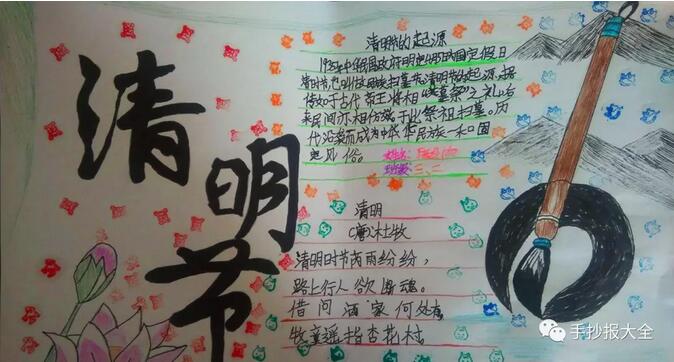 清明节
清明节的起源
1935年中华民国政府明把4月5日为国定假日
清明节,也叫做民族扫墓节。清明节的起源,据
传始于古代帝王将相“墓祭”之礼,后
来民间亦相仿效,于此祭祖扫墓。历
代沿袭而成为中华民族一和固
定风俗。
姓名:
班级:三、二
清明
(唐)杜牧
清明时节芮雨纷纷,
路上行人欲断魂。
借问酒家何处有
牧童遥指杏花村。
手抄报大全